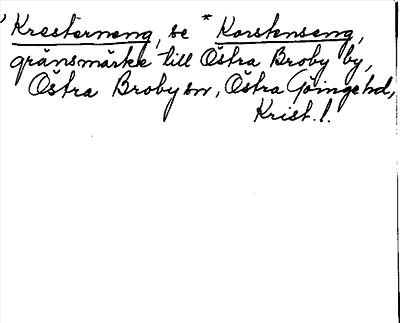 Kresterneng, se *Korstenseng,
gränsmärke till Östra Broby by,
Östra Broby sn, Östra Göinge hd,
Krist. l.